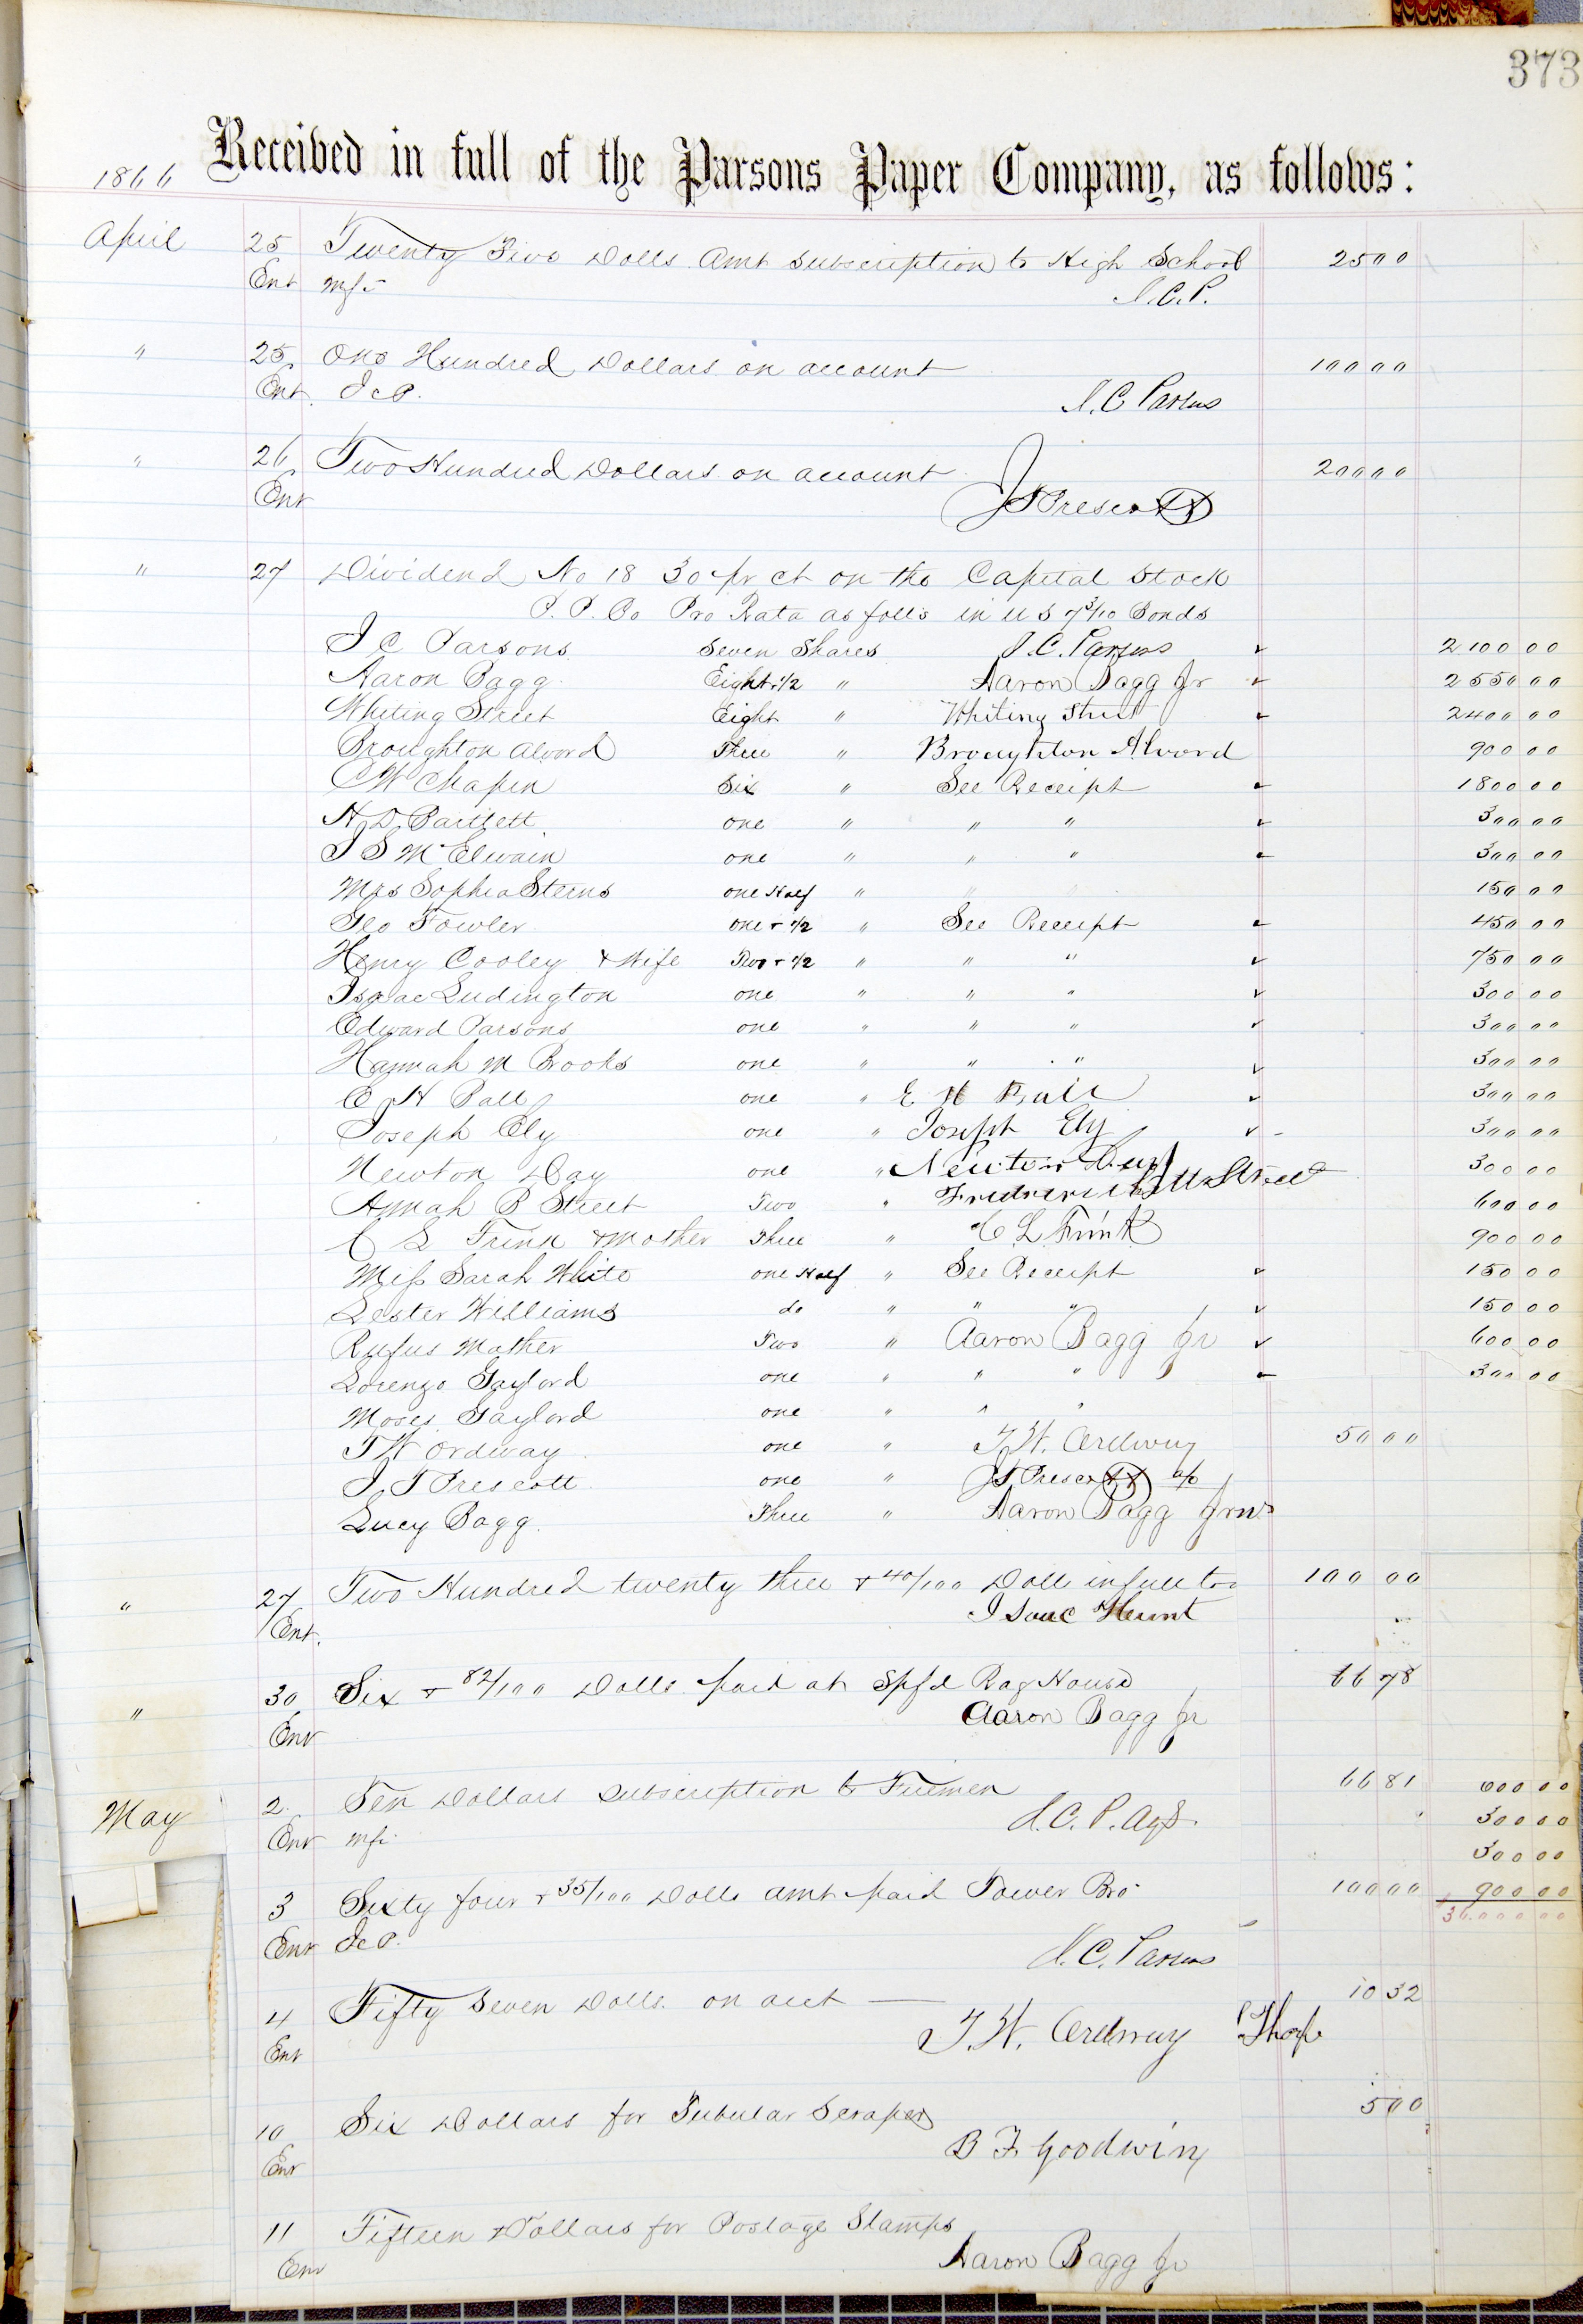 373
1866 Received in full of the Parsons Paper Company, as follows:
April 25 Twenty Five Dolls Amt Subscription to High School 25 00
Ent J.C.P.
" 25 One Hundred Dollars on account 100 00
Ent. J C P. J. C. Parsons
" 26 Two Hundred Dollars on account 200 00
Ent J T Prescott
" 27 Dividend No 18 30 pr ct on the Capital Stock
P. P. Co Pro Rata as foll's in U S 7 3/10 Bonds
J C Parsons Seven Shares J. C. Parsons 2100 00
Aaron Bagg Eight & 1/2 " Aaron Bagg Jr 2550 00
Whiting Street Eight " Whiting Street 2400 00
Broughton Alvord Three " Broughton Alvord 900 00
C W Chapin Six " See Receipt 1800 00
H D Bartlett one " " " 300 00
J S McElwain one " " " 300 00
Mrs Sophia Sterns one Half " 150 00
Geo Fowler one & 1/2 " See Receipt 450 00
Henry Cooley & Wife Two & 1/2 " " " 750 00
Isaac Ludington one " " " 300 00
Edward Parsons one " " " 300 00
Hannah M Brooks one " " " 300 00
E H Ball one " E H Ball 300 00
Joseph Ely one " Joseph Ely 300 00
Newton Day one " Newton Day 300 00
Annah B Street Two " Street 600 00
C L Frink & Mother Three " C L Frink 900 00
Miss Sarah White one Half " See Receipt 150 00
Lester Williams do " " " 150 00
Rufus Mather Two " Aaron Bagg Jr 600 00
Lorenzo Gaylord one " " " 300 00
Moses Gaylord one " " "
T W Ordway one " T. W. Ordway 50 00
J T Prescott one " J T Prescott
Lucy Bagg Three " Aaron Bagg Jr
" 27 Two Hundred twenty three & 40/100 Dolls in full to 100 00
Ent. Isaac Hunt
" 30 Six & 82/100 Dolls paid at Spfd Rag House 66 78
Ent Aaron Bagg Jr
May 2 Ten Dollars Subscription to Firemen 66 81 600 00
Ent J. C. P. Agt. 300 00
300 00
3 Sixty four & 35/100 Dolls amt paid Tower Bro 100 00 900 00
Ent J C P. J. C. Parsons 36.000 00
4 Fifty Seven Dolls. on acct 10 32
Ent T. W. Ordway Thorp
10 Six Dollars for Tubular Scraper 5 00
Ent B F Goodwin
11 Fifteen Dollars for Postage Stamps
Ent Aaron Bagg Jr